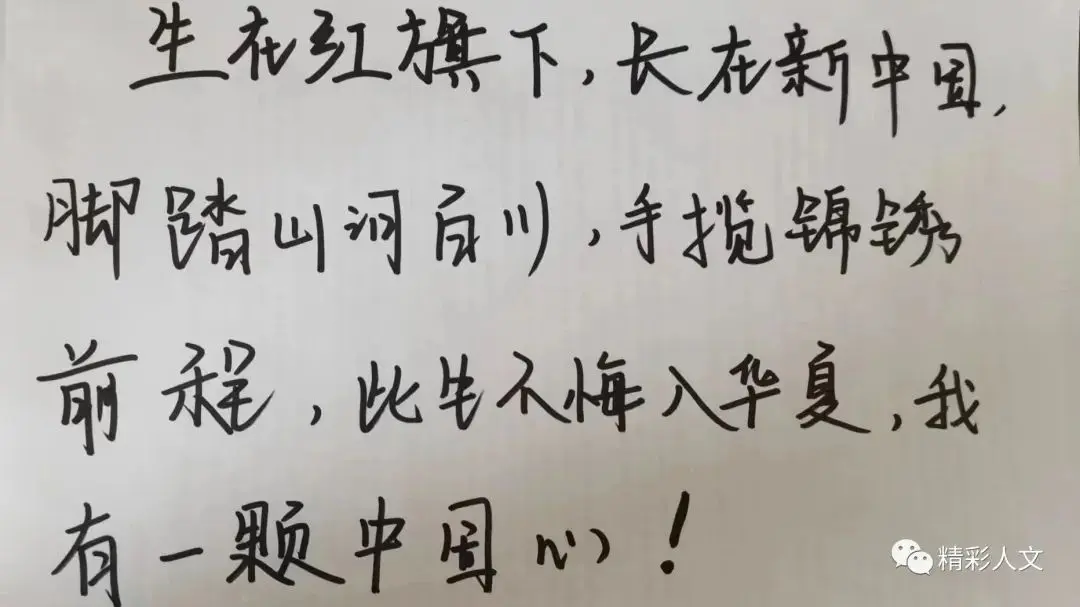 生在红旗下，长在新中国，
脚踏山河百川，手揽锦锈
前程，此生不悔入华夏，我
有一颗中国心！
精彩人文